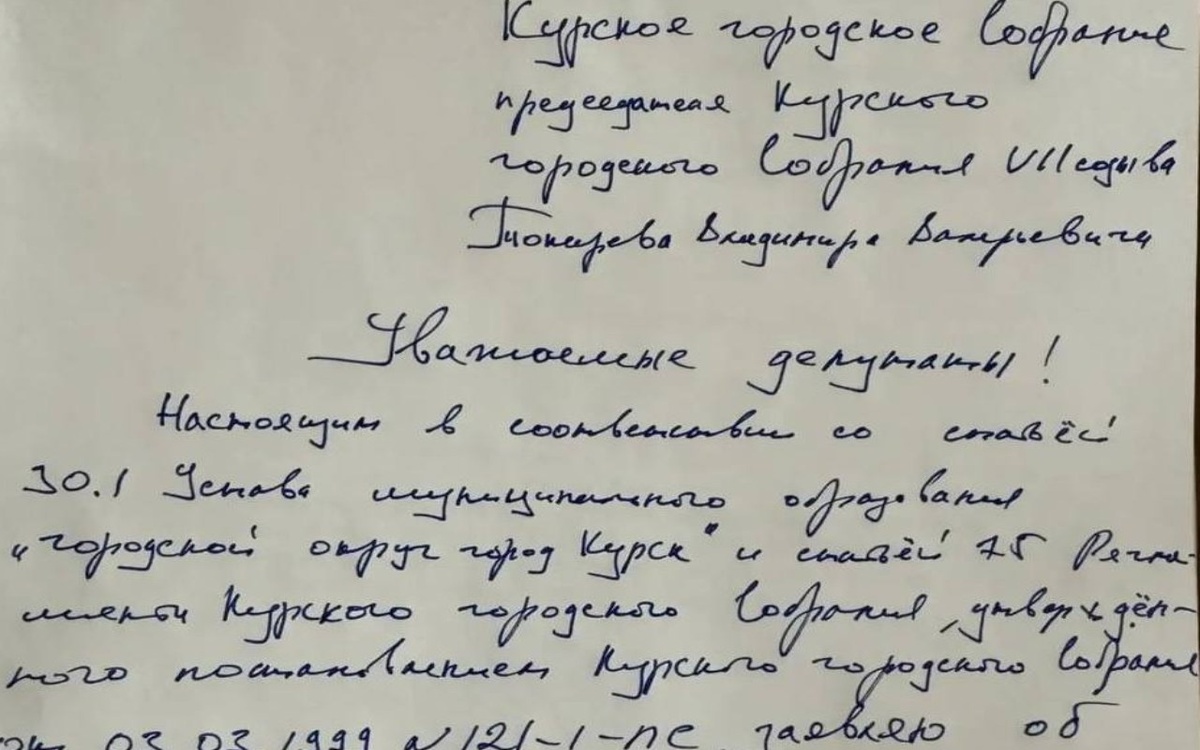 Курское городское Собрание
председателя Курского
городского Собрания VII созыва
Токарева Владимира Валерьевича
Уважаемые депутаты!
Настоящим в соответствии со статьёй
30.1 Устава муниципального образования
„городской округ город Курск" и статьёй 75 Регла-
мента Курского городского Собрания, утверждён-
ного постановлением Курского городского Собрания
от 03.03.1999 N121-1-ПС заявляю об